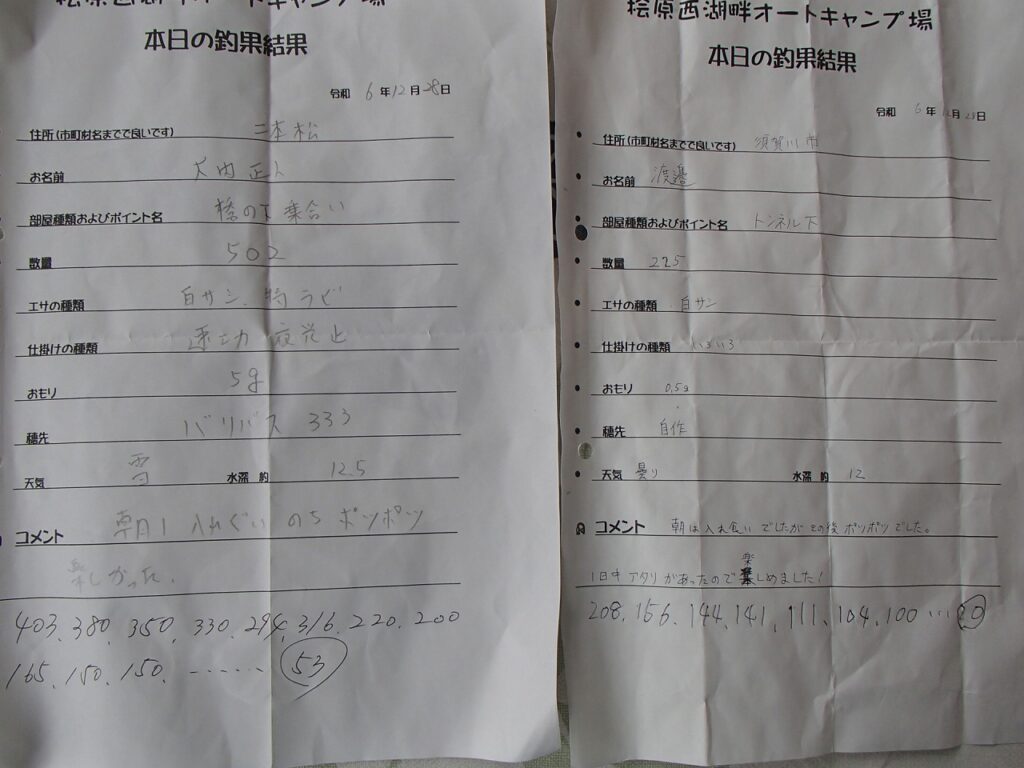 桧原西湖畔オートキャンプ場
本日の釣果結果
令和 6 年 12 月 28 日
住所(市町村名までで良いです) 二本松
お名前 大内正人
部屋種類およびポイント名 橋の下 乗合い
数量 502
エサの種類 白サシ、特ラビ
仕掛けの種類 速攻
おもり 5g
穂先 バリバス 333
天気 雪 水深 約 12.5
コメント 朝1 入れぐい のち ポツポツ
楽しかった。
403、380、350、330、294、316、220、200
165、150、150、…… 53
桧原西湖畔オートキャンプ場
本日の釣果結果
令和 6 年 12 月 28 日
住所(市町村名までで良いです) 須賀川市
お名前 渡邉
部屋種類およびポイント名 トンネル下
数量 225
エサの種類 白サシ
仕掛けの種類 いろいろ
おもり 0.5g
穂先 自作
天気 曇り 水深 約 12
コメント 朝は入れ食いでしたがその後ポツポツでした。
1日中アタリがあったので楽しめました!
208、156、144、141、111、104、100 …